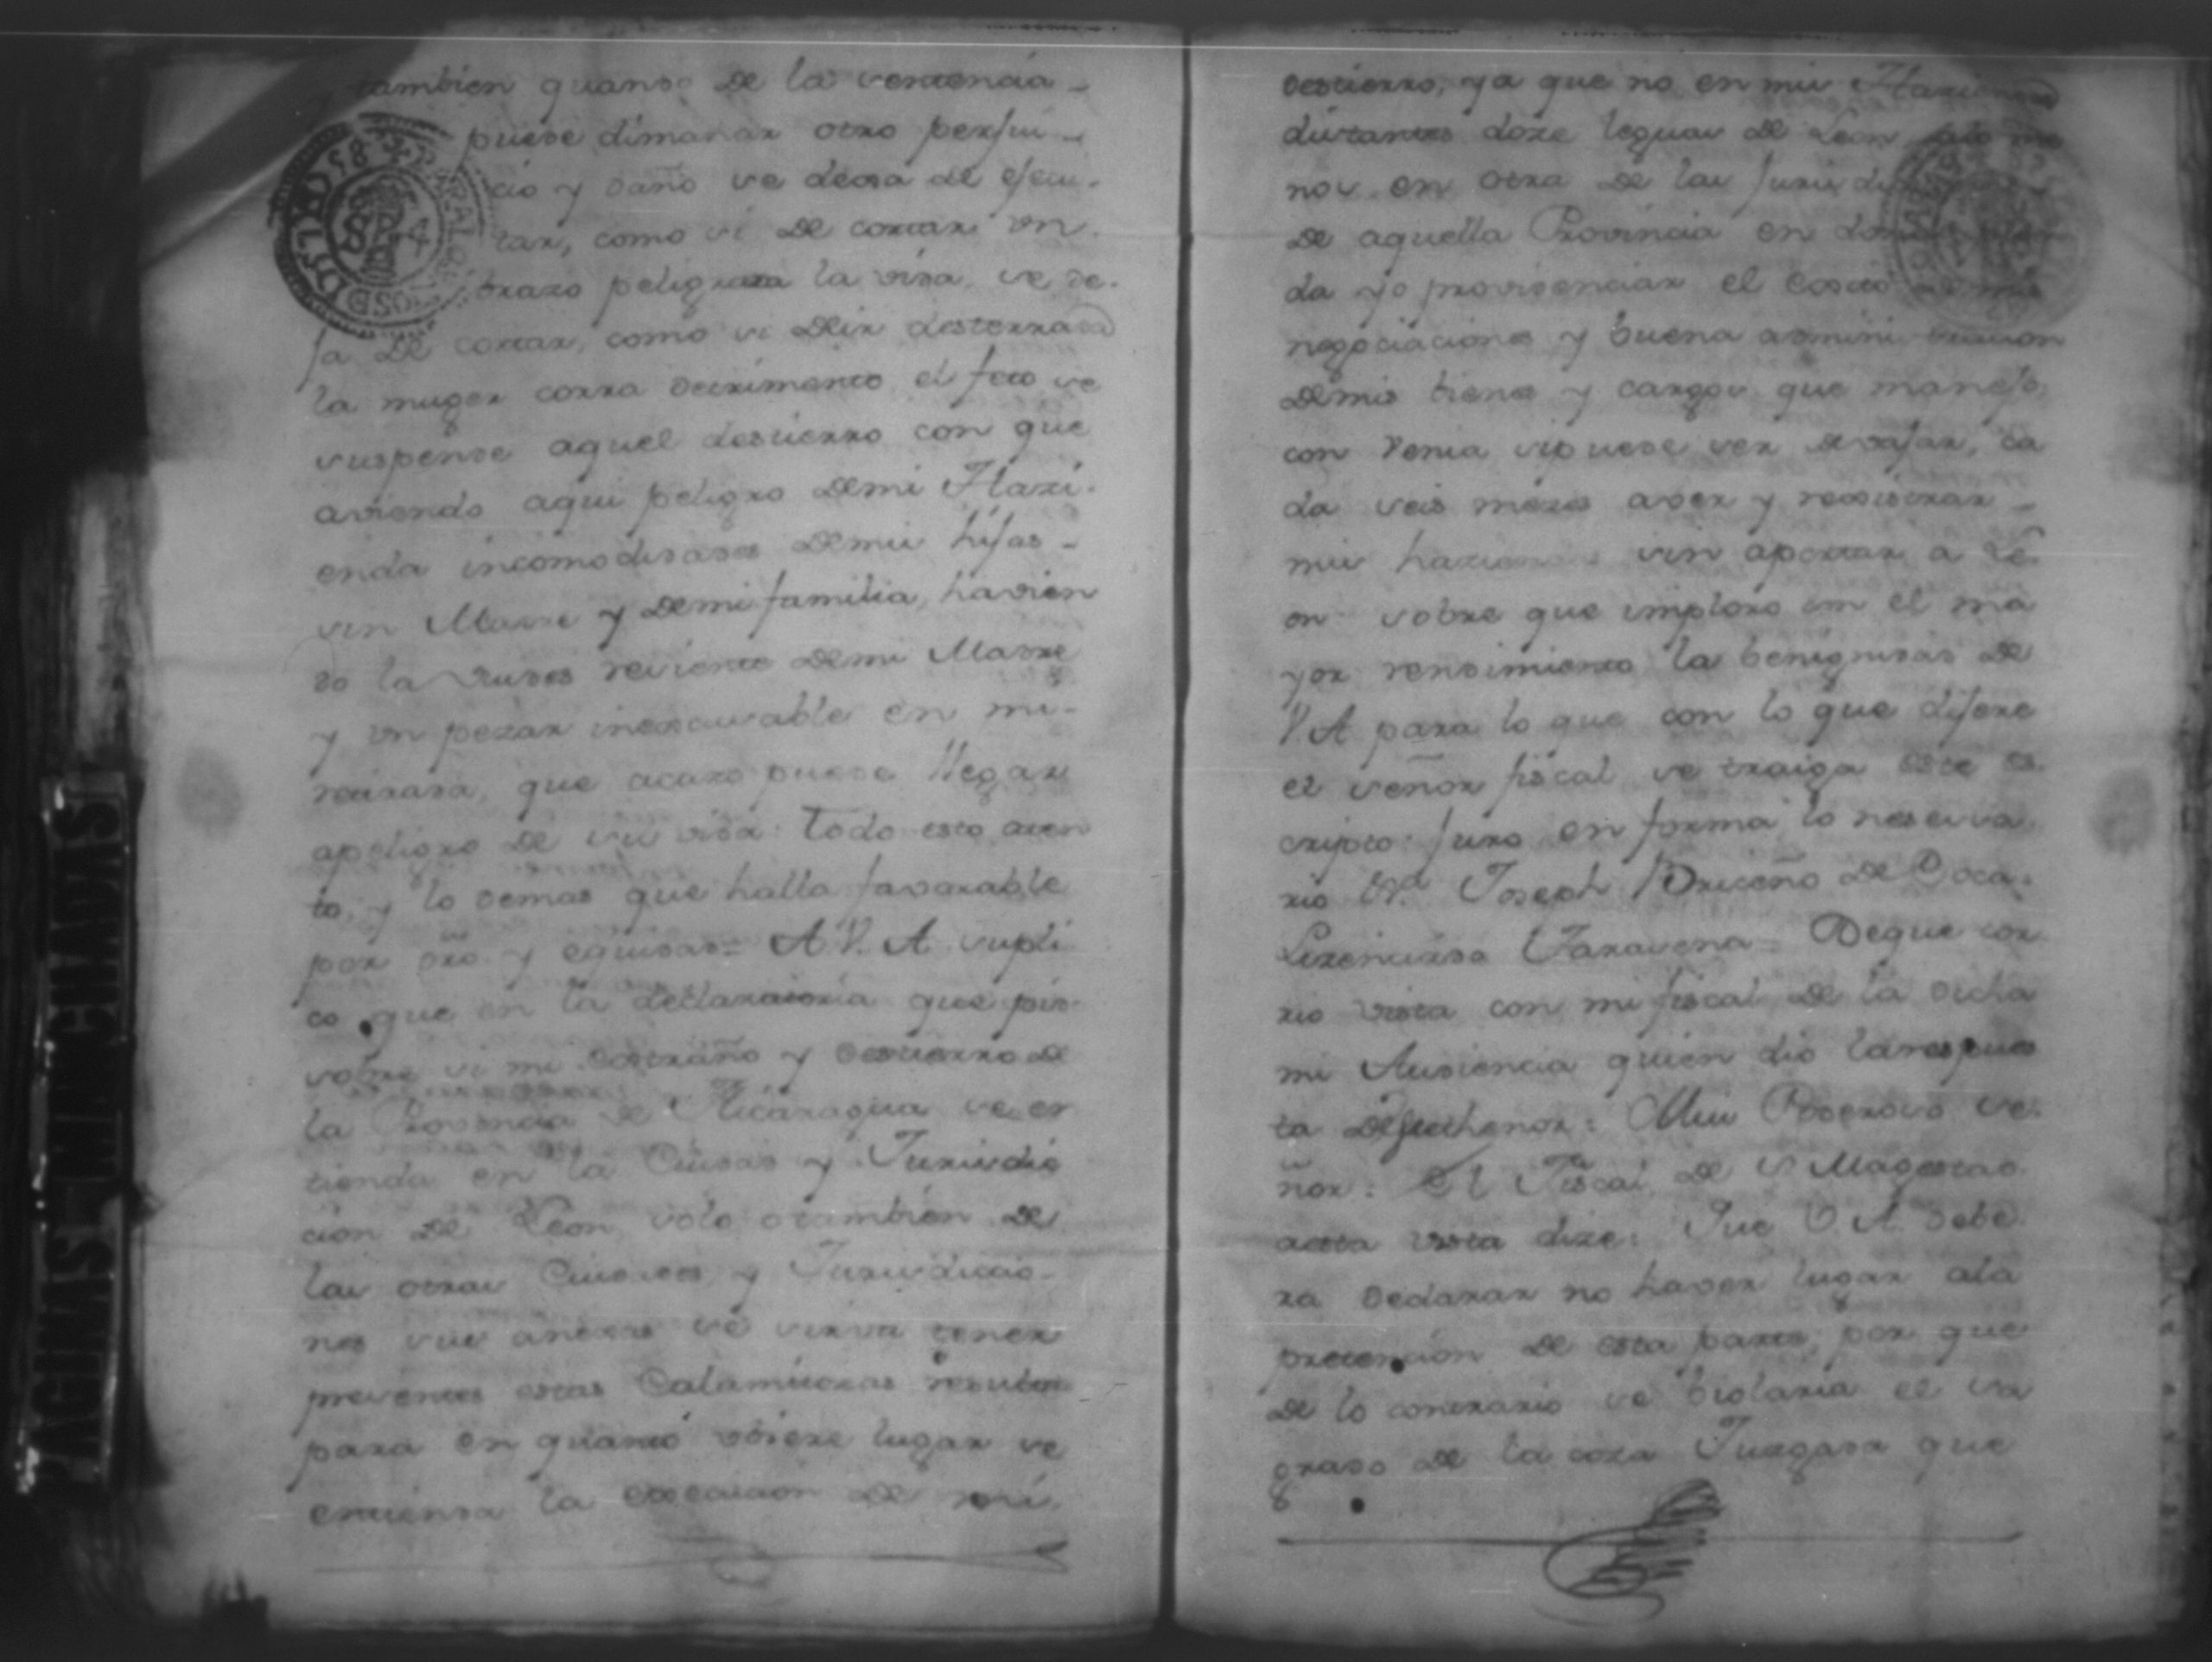 y tambien quando de la sentencia
puede dimanar otro perjui-
cio y daño se dexa de ejecu-
tar, como si de cortar un
brazo peligrara la vida, se de-
ja de cortar, como si de ir desterrada
la muger corra detrimento el feto se
suspende aquel destierro con que
aviendo aqui peligro de mi Hazi-
enda incomodidades de mis hijas
sin Madre y de mi familia, havien
do la viudes reciente de mi Madre
y un pezar inexcusable en mi
retirada, que acazo puede llegar
a peligro de su vida: todo esto aten
to, y lo demas que halla favorable
por dro. y equidad = A V. A. supli
co que en la declaratoria que pido
sobre si mi extraño y destierro de
la Provincia de Nicaragua se en
tienda en la Ciudad y Jurisdic
cion de Leon, solo o tambien de
las otras Ciudades y Jurisdiccio-
nes sus anexas se sirva tener
presentes estas Calamitozas resultas
para en quanto ubiere lugar se
entienda la execucion de mi
destierro, ya que no en mis Hazienda
distantes doze leguas de Leon, alo me
nos en otra de las Jurisdi
de aquella Provincia en donde
da yo providenciar el de mis
negociaciones y buena administracion
de mis bienes y cargos que manejo
con Venia si puede ser de bajar, ca
da seis mezes aver y registrar
mis hazien sin aportar a Le
on sobre que imploro con el ma
yor rendimiento la benignidad de
V. A. para lo que con lo que dijere
el señor fiscal se traiga este es
cripto: Juro en forma lo nesesa
rio Va. Joseph Briceño de Coca =
Lizenciado Taracena = De que cor
rio vista con mi fiscal de la dicha
mi Audiencia quien dio la respues
ta del thenor: Mui Poderoso Se-
ñor: El Fiscal de S. Magestad
a esta vista dize: Que V. A. debe
ra declarar no haver lugar ala
pretencion de esta parte, por que
de lo contrario se violaria el sa
grado de la coza Juzgada que